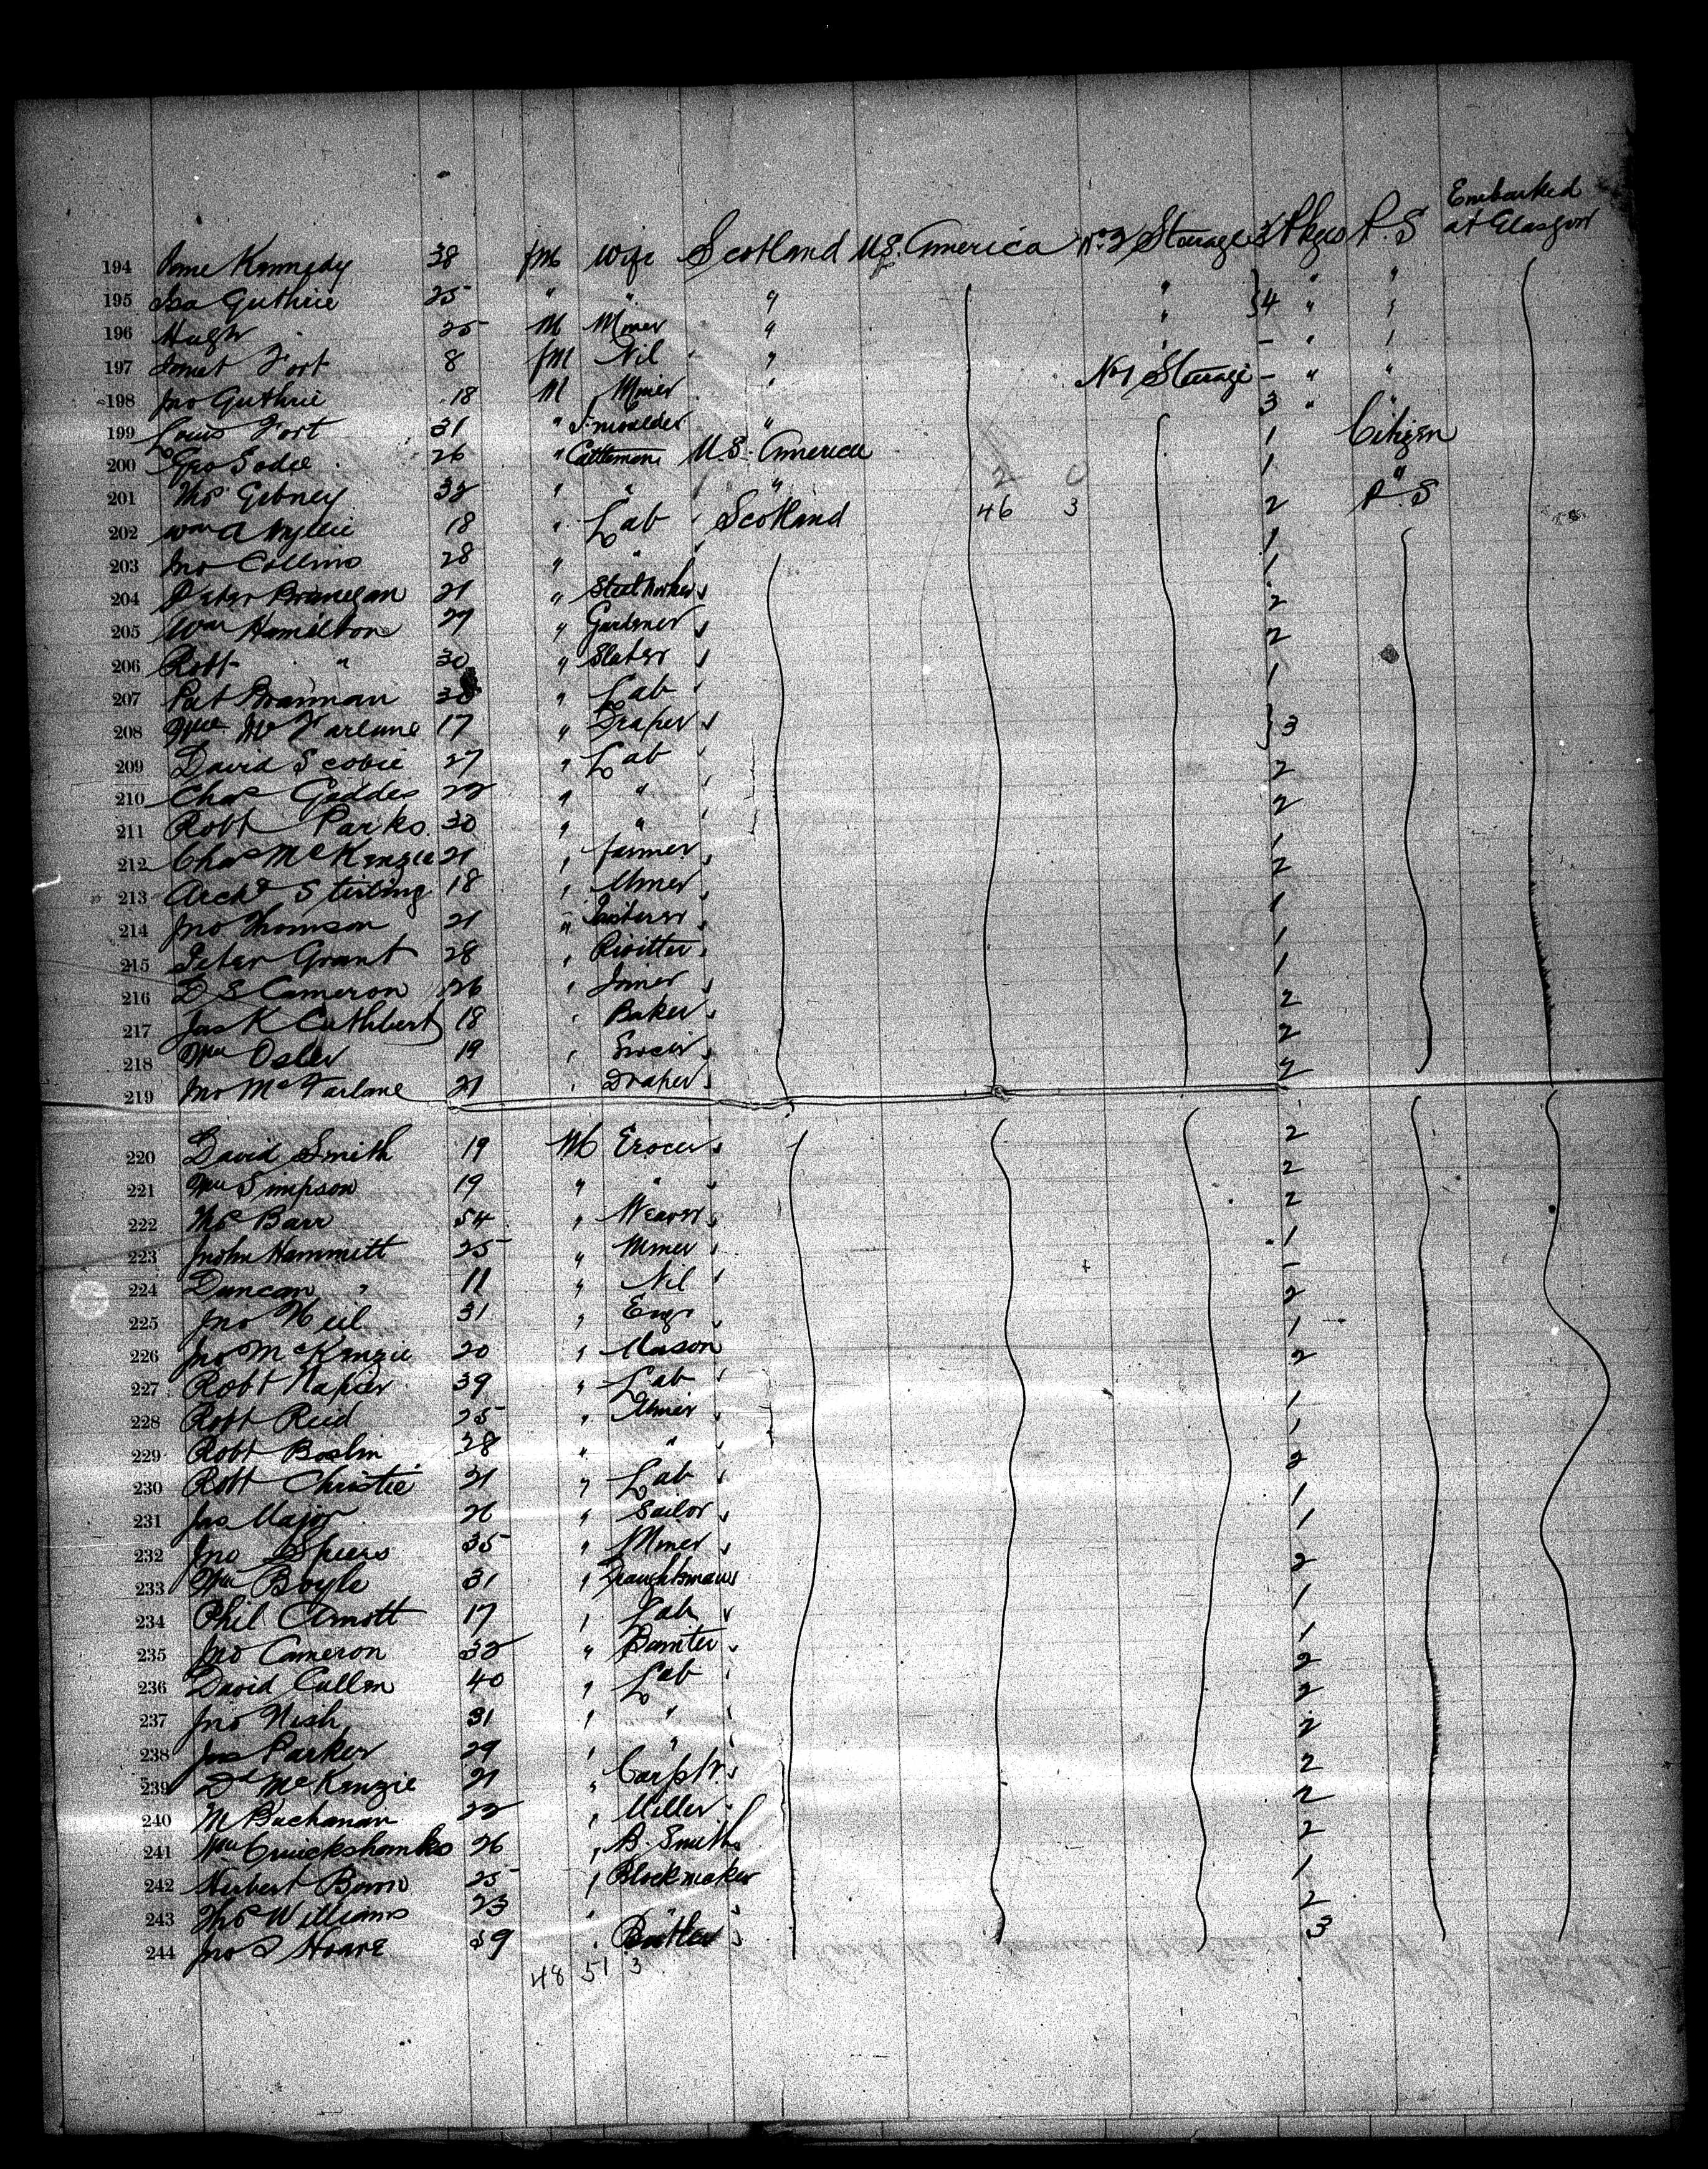 Embarked
194 Kennedy 38 fM Wife Scotland U.S. America No 2 Steerage 3 Pkgs P.S at Glasgow
195 Isa Guthrie 25 " " " " } 4 " "
196 Hugh 25 M Miner " "
197 Fort 8 fM Nil " " -
198 Jno Guthrie 18 M Miner " No 1 Steerage - " "
199 Louis Fort 31 " " 3 "
200 Geo 26 " Cattleman U.S. America 1 Citizen
201 Thos Gebney 32 " " " 2 0 1 "
202 Wm A Wyllie 18 " Lab Scotland 46 3 2 P.S
203 Jno Collins 28 " " 1
204 Peter 21 " Steelworker 1
205 Wm Hamilton 27 " Gardener 2
206 Robt " 30 " Slater 2
207 Pat " Lab 1
208 McFarlane 17 " Draper } 3
209 David Scobie 27 " Lab
210 Chas Geddes 22 " " 2
211 Robt Parks 30 " " 2
212 Chas McKenzie 21 " Farmer 1
213 Archd Stirling 18 " Miner 2
214 Jno Thomson 21 " 1
215 Peter Grant 28 " Rivitter 1
216 D S Cameron 26 " Joiner 1
217 Jas K Cuthbert 18 " Baker 2
218 Wm Osler 19 " Grocer 2
219 Jno McFarlane 21 " Draper 2
220 David Smith 19 M Grocer 2
221 Wm Simpson 19 " " 2
222 Thos Barr 54 " Weaver 2
223 Hammitt 25 " Miner 1
224 Duncan " 11 " Nil -
225 Jno Neil 31 " Engr 2
226 Jno McKenzie 20 " Mason 1
227 Robt Napier 39 " Lab 2
228 Robt Reid 25 " Miner 1
229 Robt 28 " " 1
230 Robt Christie 21 " Lab 2
231 Jas Major 26 " Sailor 1
232 Jno Speirs 35 " Miner 1
233 Wm Boyle 31 " Draughtsman 2
234 Phil 17 " Lab 1
235 Jno Cameron 32 " 1
236 David Cullen 40 " Lab 2
237 Jno Nish 31 " " 2
238 Jas Parker 29 " " 2
239 Dd McKenzie 21 " Carptr 2
240 M Buchanan 22 " Miller 2
241 Wm Cruickshanks 26 " B. Smith 2
242 Herbert 25 " Blockmaker 1
243 Thos Williams 23 " " 2
244 Jno Hoare " Butler 3
48 51 3